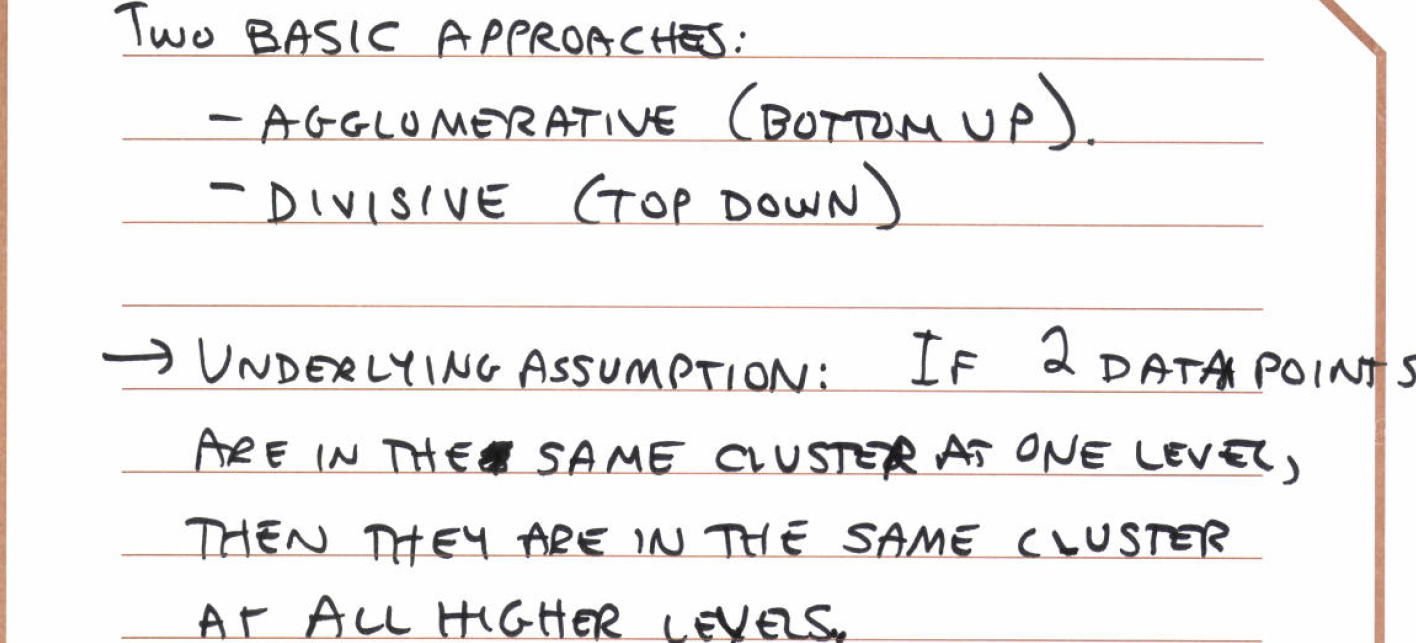 Two BASIC APPROACHES:
- AGGLOMERATIVE (BOTTOM UP).
- DIVISIVE (TOP DOWN)
→ UNDERLYING ASSUMPTION: IF 2 DATA POINTS
ARE IN THE SAME CLUSTER AT ONE LEVEL,
THEN THEY ARE IN THE SAME CLUSTER
AT ALL HIGHER LEVELS.